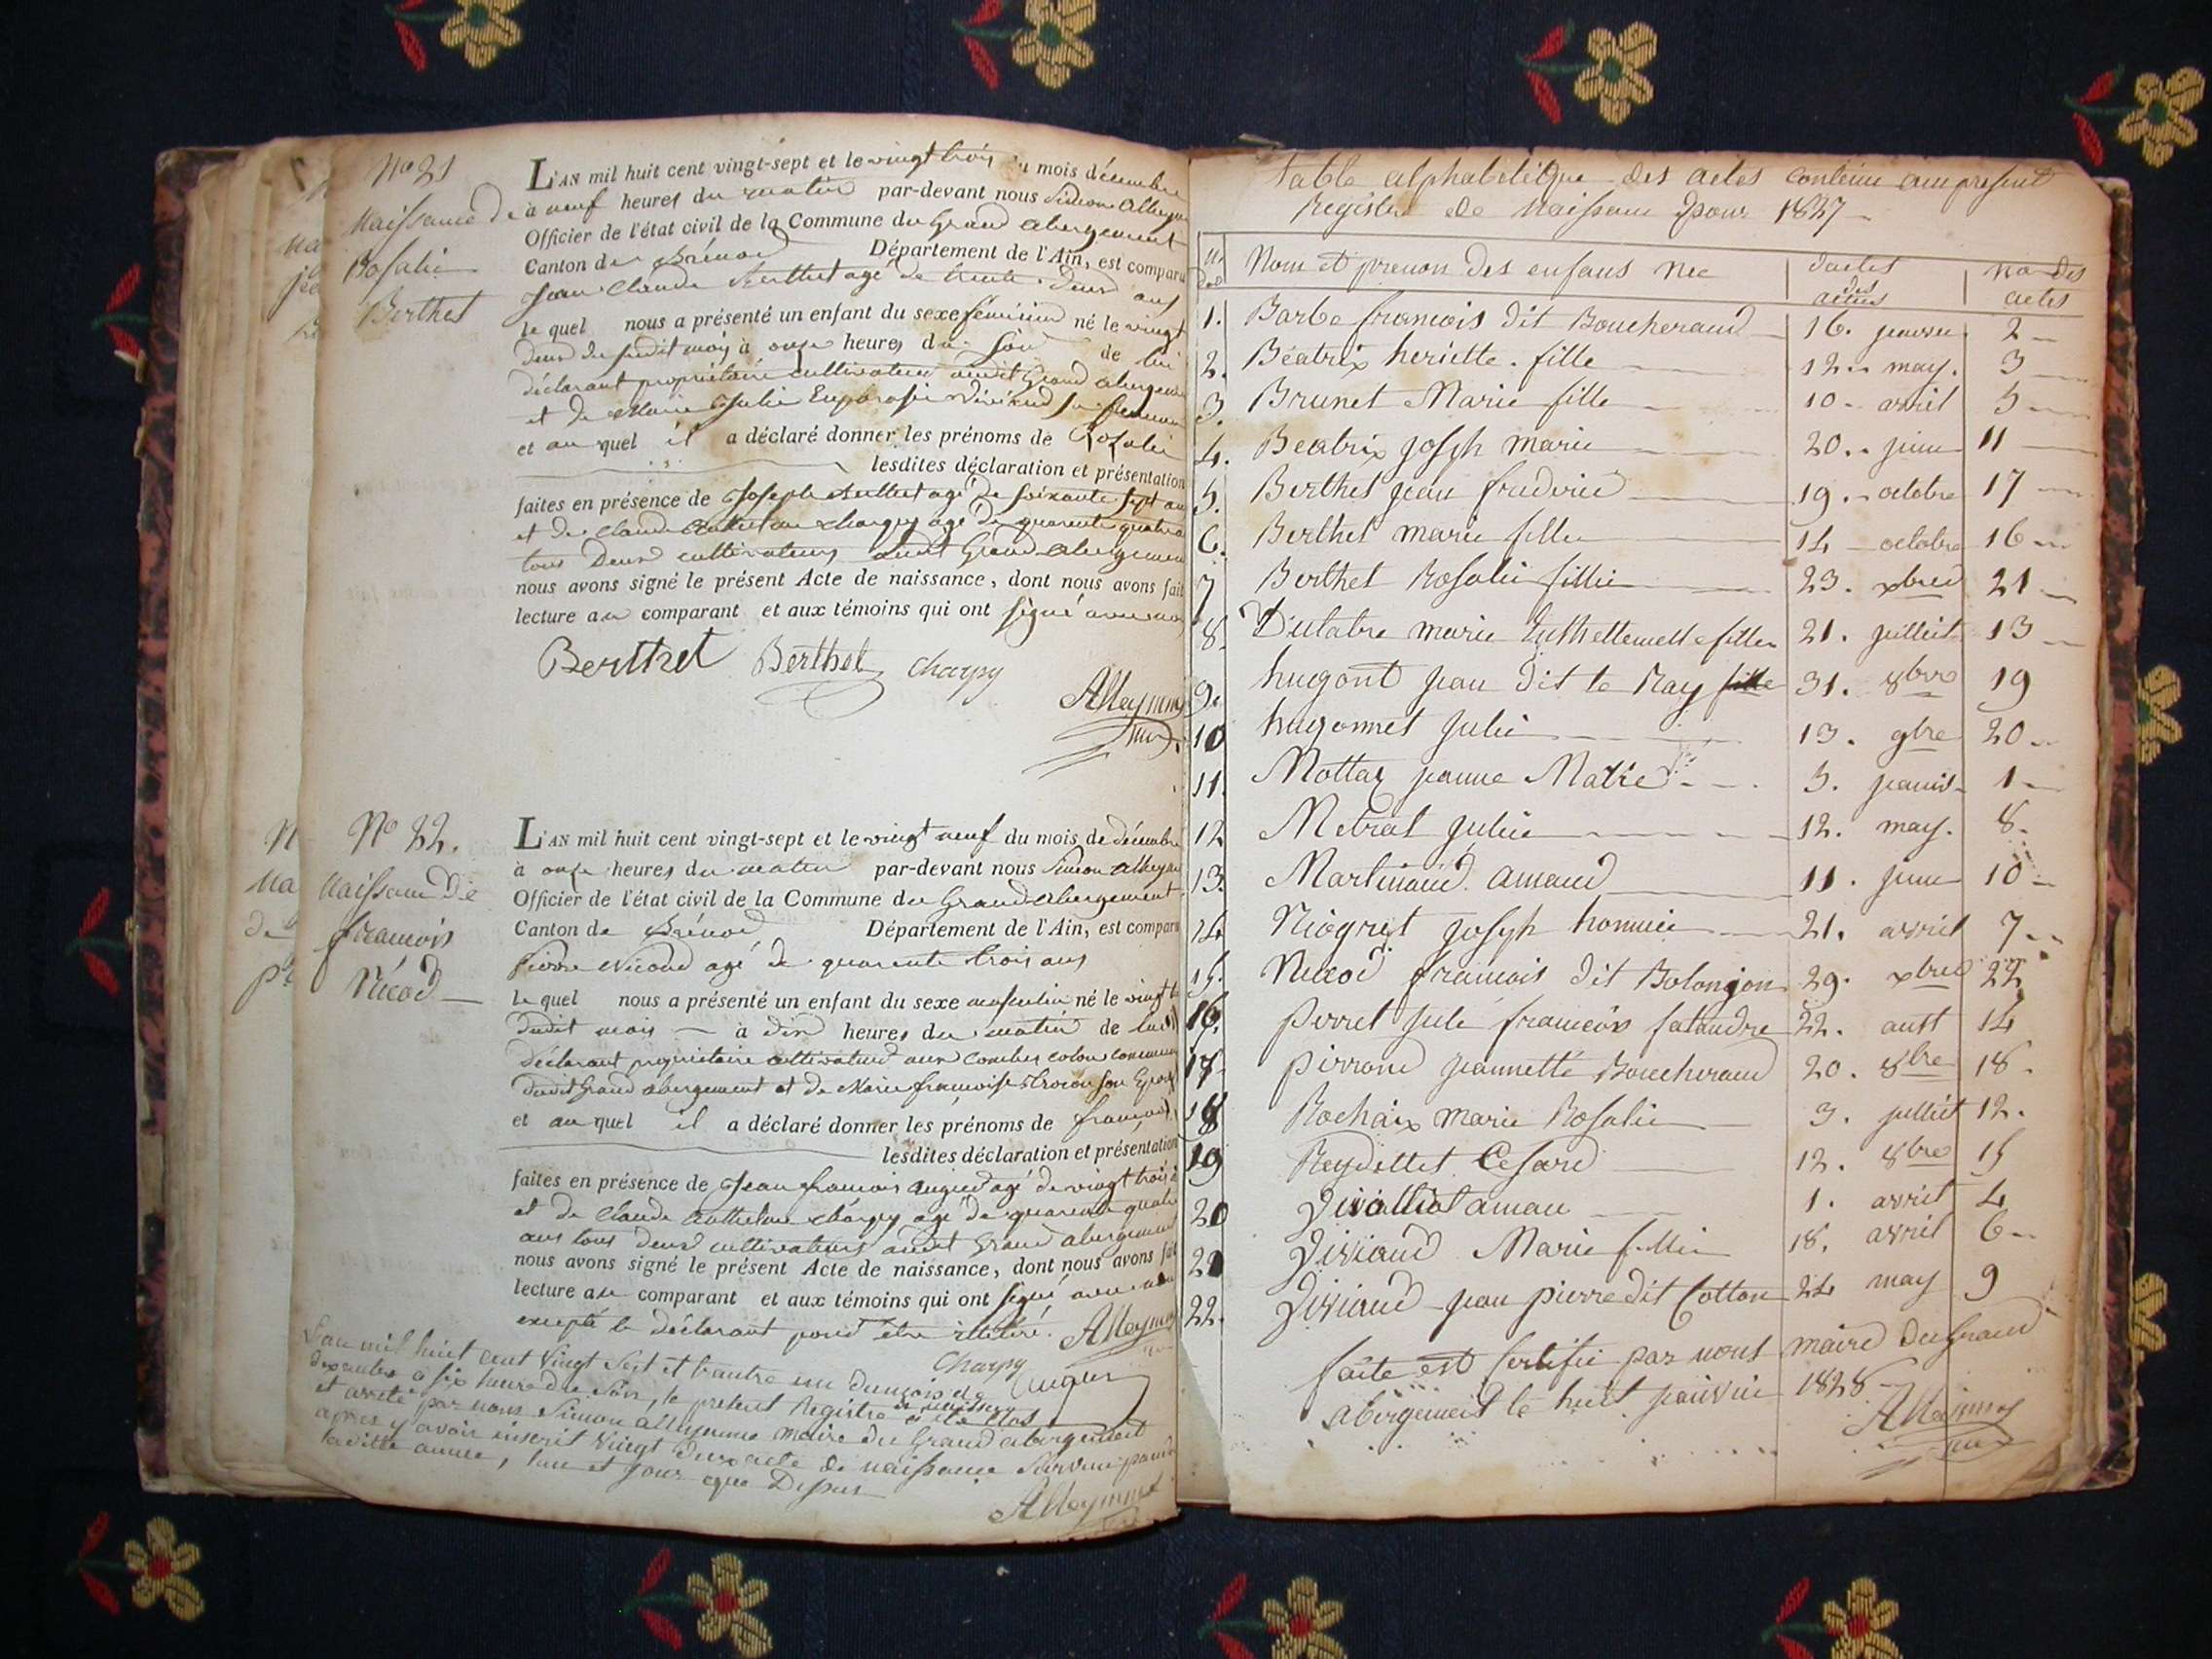 No 21
Naissance de
Rosalie
Berthet
L'AN mil huit cent vingt-sept et le vingt trois du mois décembre
à neuf heures du matin par-devant nous Simeon Alleyme
Officier de l'état civil de la Commune du Grand abergement
Canton de Brénod Département de l'Ain, est comparu
Jean Claude Berthet agé de trente deux ans
le quel nous a présenté un enfant du sexe féminin né le vingt
deux du susdit mois à onze heures du soir de lui
déclarant propriétaire cultivateur audit Grand abergement
et de Marie Julie Euphrosie Viviand sa femme
et au quel il a déclaré donner les prénoms de Rosalie
lesdites déclaration et présentation
faites en présence de Joseph Berthet agé de soixante sept ans
et de Claude Anthelme Charpy agé de quarente quatre
tous Deux cultivateurs audit Grand abergement
nous avons signé le présent Acte de naissance, dont nous avons fait
lecture au comparant et aux témoins qui ont signé avec nous
Berthet Berthet Charpy
Alleymme
No 22.
Naissance de
francois
Nicod
L'AN mil huit cent vingt-sept et le vingt neuf du mois de décembre
à onze heures du matin par-devant nous Simeon Alleyme
Officier de l'état civil de la Commune du Grand abergement
Canton de Brénod Département de l'Ain, est comparu
Pierre Nicod agé de quarente trois ans
le quel nous a présenté un enfant du sexe masculin né le vingt
dudit mois à dix heures du matin de lui
déclarant propriétaire cultivateur aux Combes commune
dudit Grand abergement et de Marie francoise son Epouse
et au quel il a déclaré donner les prénoms de francois
lesdites déclaration et présentation
faites en présence de Jean francois agé de vingt trois
et de Claude Anthelme Charpy agé de quarente quatre
ans tous deux cultivateurs audit Grand abergement
nous avons signé le présent Acte de naissance, dont nous avons fait
lecture au comparant et aux témoins qui ont signé avec nous
excepté le déclarant pour être illitéré. Alleymme
Charpy
L'an mil huit cent vingt sept et trante un du mois de
dexembre à six heure du soir, le present Registre de naissance a été Clos
et arreté par nous Simeon alleymme maire du Grand abergement
apres y avoir inscrit vingt deux acte de naissance survenu pendant
laditte annee, l'an et jour que Dessus
Alleymme
table alphabetique des actes contenu au present
Registre de Naissance pour 1827
Nom et prenom des enfans nee dactes des actes no des actes
1. Barbe francois dit Boucheraud 16. janvier 2
2. Beatrix heriette fille 12. may. 3
3. Brunet Marie fille 10 avril 5
4. Beatrix Joseph marie 20. juin 11
5. Berthet jean frederic 19. octobre 17
6. Berthet marie fille 14 octobre 16
7 Berthet Rosalie fillie 23. xbre 21
8. Dulatre marie fille 21. julliet 13
9. hugont jean dit le Ray 31. 8bre 19
10 hugonnet Julie 13. 9bre 20
11. Mottaz jeanne Marie 5. janvier 1
12 Metrat Julie 12. may. 8.
13. Martinand. amand 11. juin 10
14 Niogret Joseph honnoré 21. avril 7
15. Nicod francois dit Bolonjon 29. xbre 22
16. perret Jule francois 22. aust 14
17 pirrand jeannette Boucheraud 20. 8bre 18.
18 Rochaix marie Rosalie 3. julliet 12.
19 Reydellet Cesard 12. 8bre 15
20 Jivalliat aman 1. avril 4
21 Jiviand Marie fillie 18. avril 6
22. Jiviand jean pierre dit Cotton 24 may 9
faite est Certifie par nous maire du Grand
abergement le huit janvier 1828
Alleymme